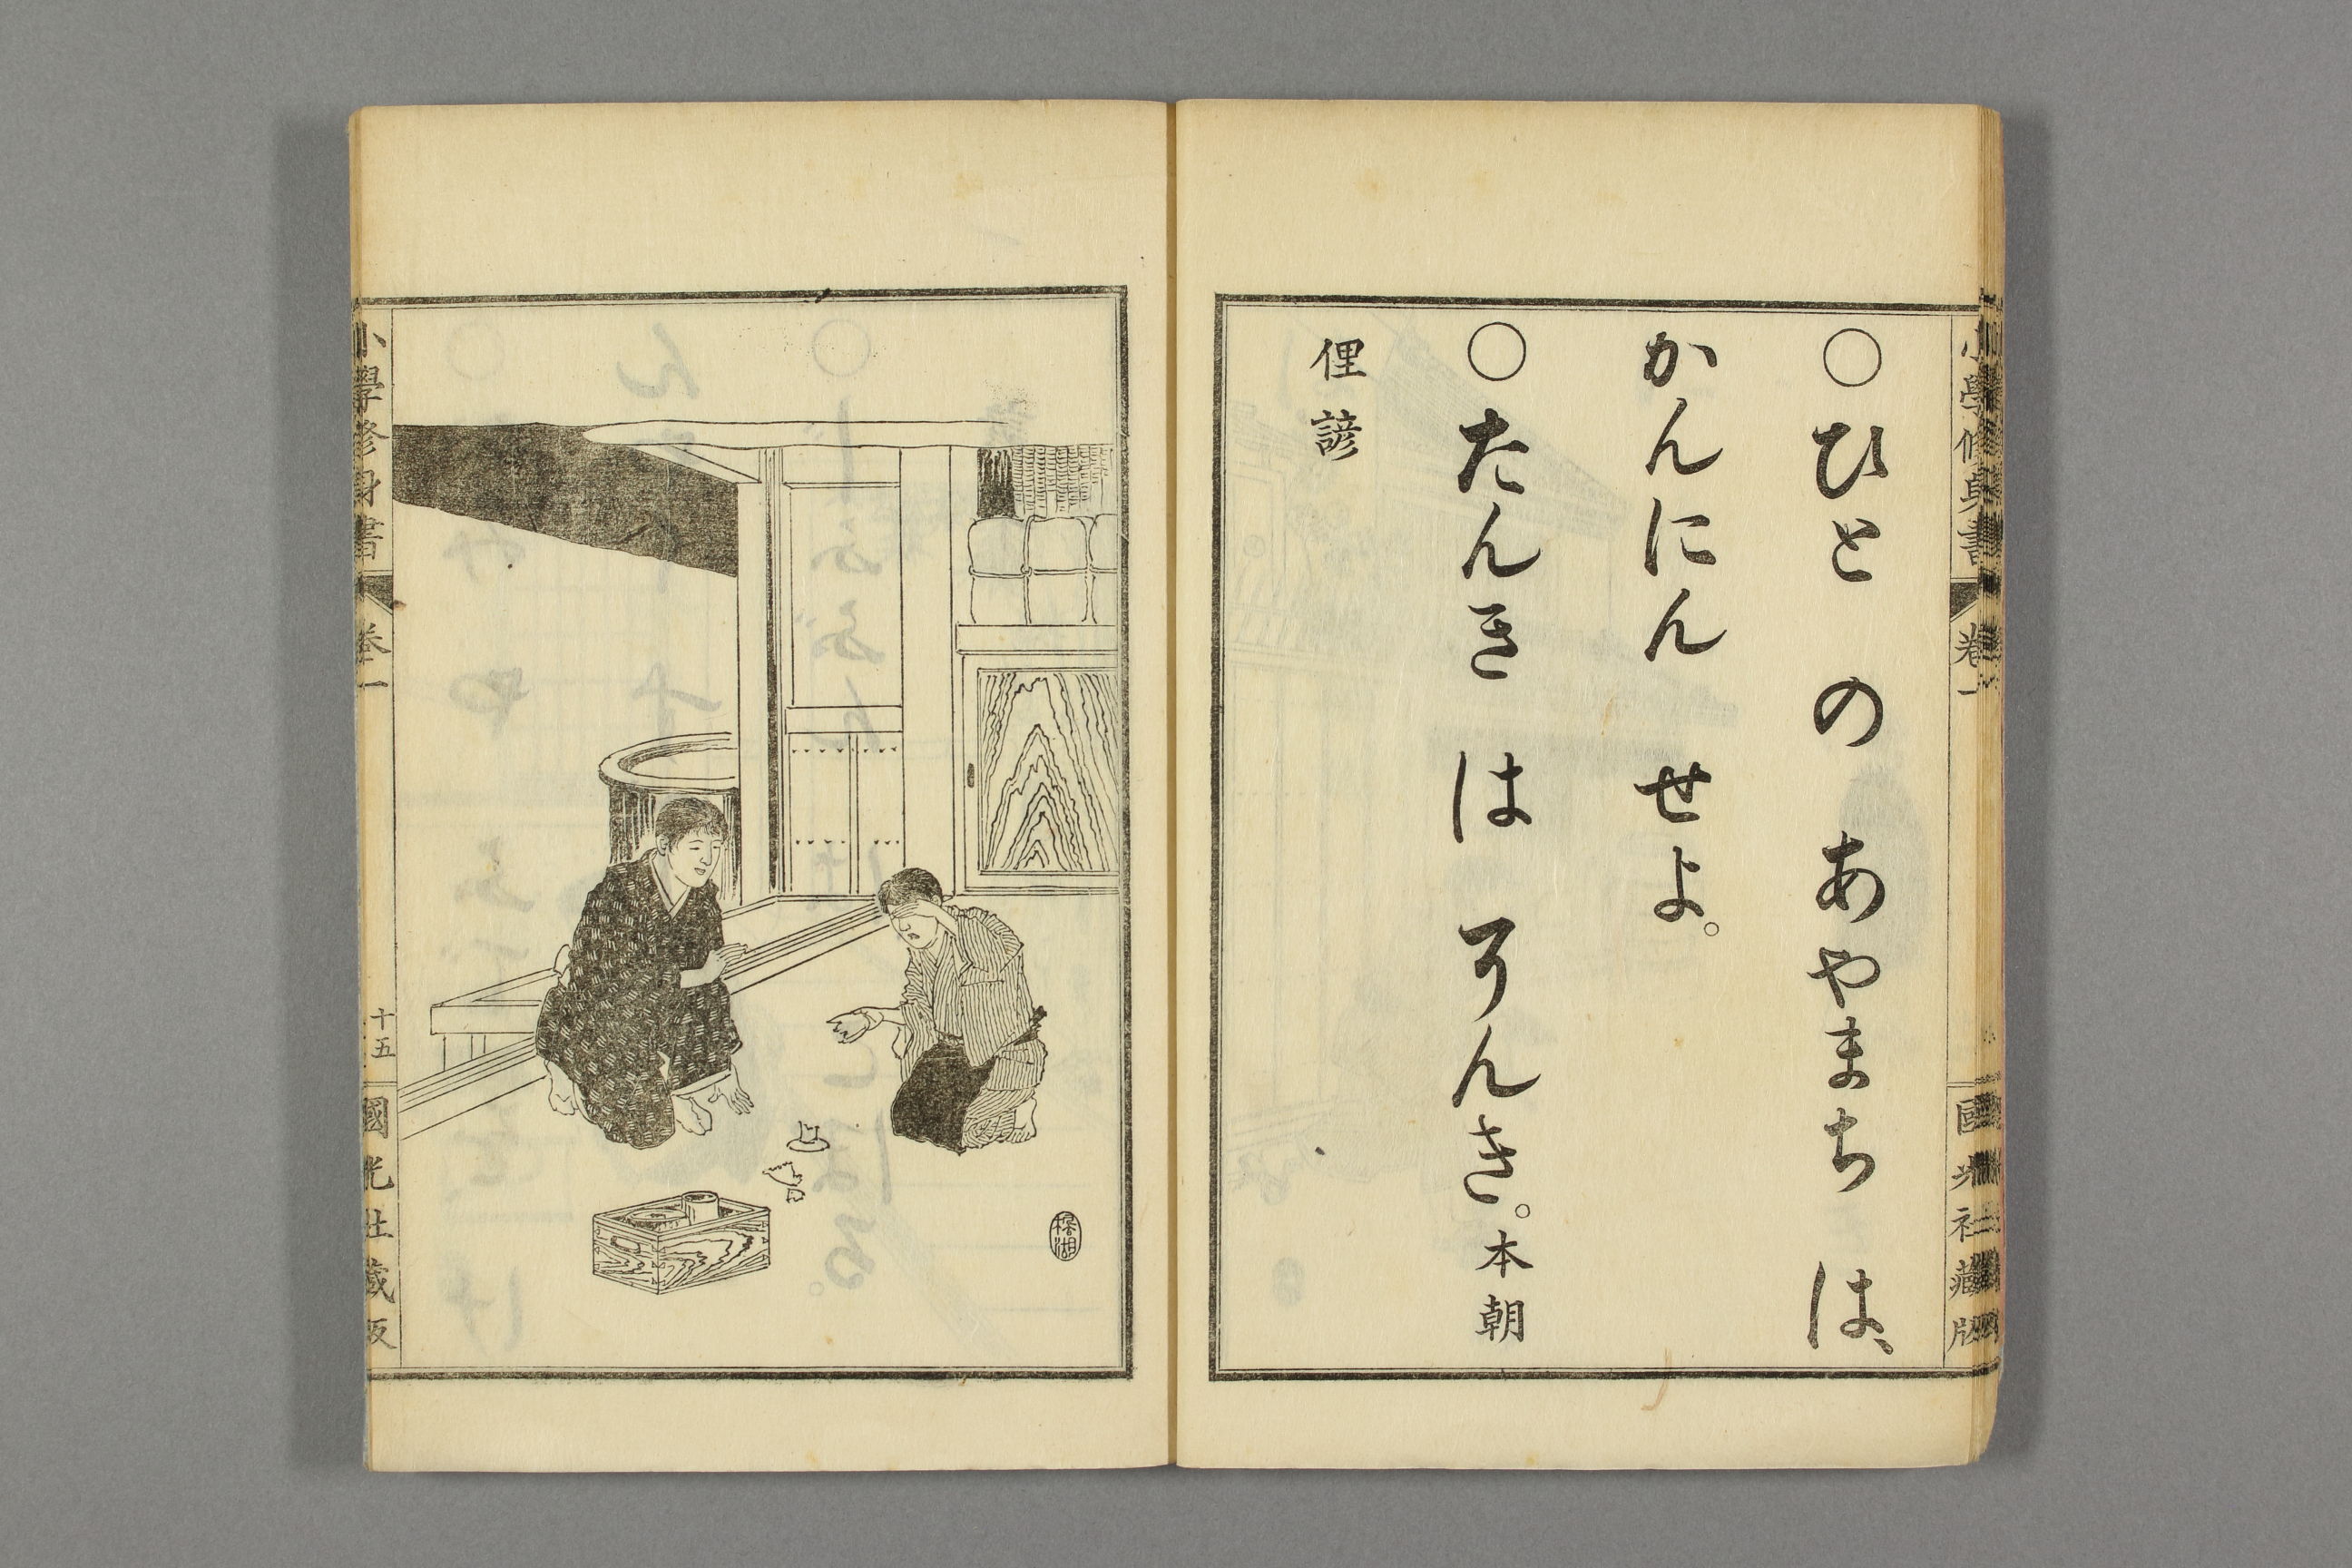 小學修身書 卷一 國光社藏版
○ひと の あやまち は、
かんにん せよ。
○たんき は そんき。本朝
俚諺
小學修身書 卷一 十五 國光社藏版